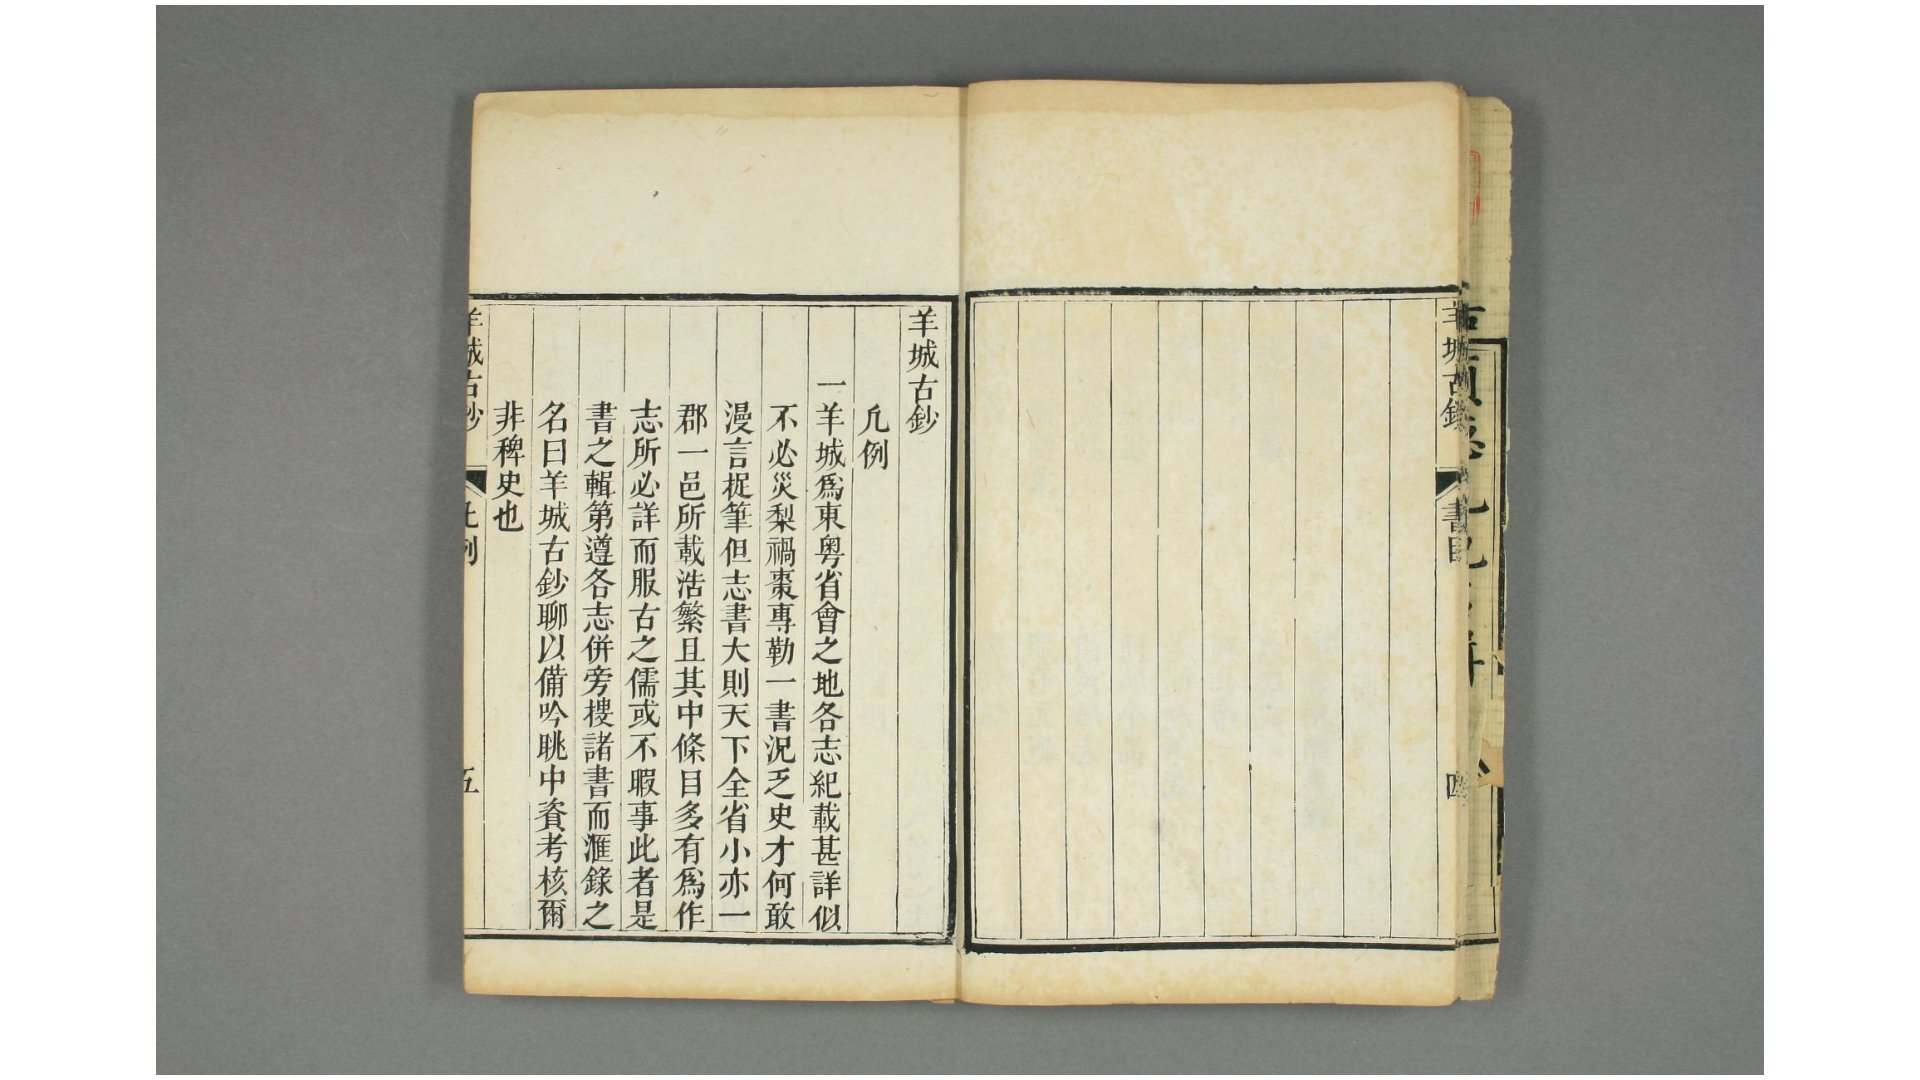 羊城古鈔
書目
四
羊城古鈔
凡例
一羊城爲東粤省會之地各志紀載甚詳似
不必災梨禍棗專勒一書況乏史才何敢
漫言捉筆但志書大則天下全省小亦一
郡一邑所載浩繁且其中條目多有爲作
志所必詳而服古之儒或不暇事此者是
書之輯第遵各志併旁搜諸書而滙錄之
名曰羊城古鈔聊以備吟眺中資考核爾
非稗史也
羊城古鈔
凡例
五